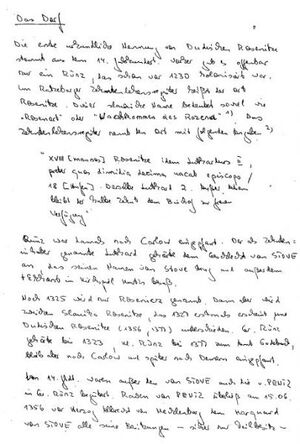 Das Dorf
Die erste urkundliche Nennung von Dutschen Rosenitze
stammt aus dem 14. Jahrhundert. Vorher gab es offenbar
nur ein Rünz, das schon vor 1230 kolonisiert war.
Im Ratzeburger Zehntenlehensregister heißt der Ort
Rosenitze. Dieser slawische Name bedeutet soviel wie
"Rosenort" oder "Nachkommen des Rozena" 1). Das
Zehntenlehensregister nennt den Ort mit folgenden 2)
"XVIII (mansos) Rosenitze idem Lutbrtus II,
preter quos dimidia decima vacat episcopo /
18 [Hufen] Derselbe 2. Hufen
bleibt der halbe Zehnt dem Bischof zur freien
Verfügung"
Rünz war damals nach Carlow eingepfarrt. Der als Zehnten-
inhaber genannte gehörte dem Geschlecht von STOVE
an, das seinen Namen von Stove und außerdem
im Kirchspiel
Noch 1325 wird nur Rosenierz genannt. Dann aber wird
zwischen Slavica Rosenitze, das 1327 erstmals erscheint und
Dutschen Rosenitze (1356, 1377) unterschieden. Gr. Rünz
gehörte bis 1323, Kl. Rünz bis 1377 zum Land Gadebusch,
blieb aber nach Carlow und später nach Demern eingepfarrt.
Im 14. Jhdt. waren außer den von STOVE auch die v. PENTZ
in Gr. Rünz begütert. Raven von PENTZ am 15.06.
1356 vor Herzog Albrecht von Mecklenburg dem Marquard
von STOVE alle seine Besitzungen -